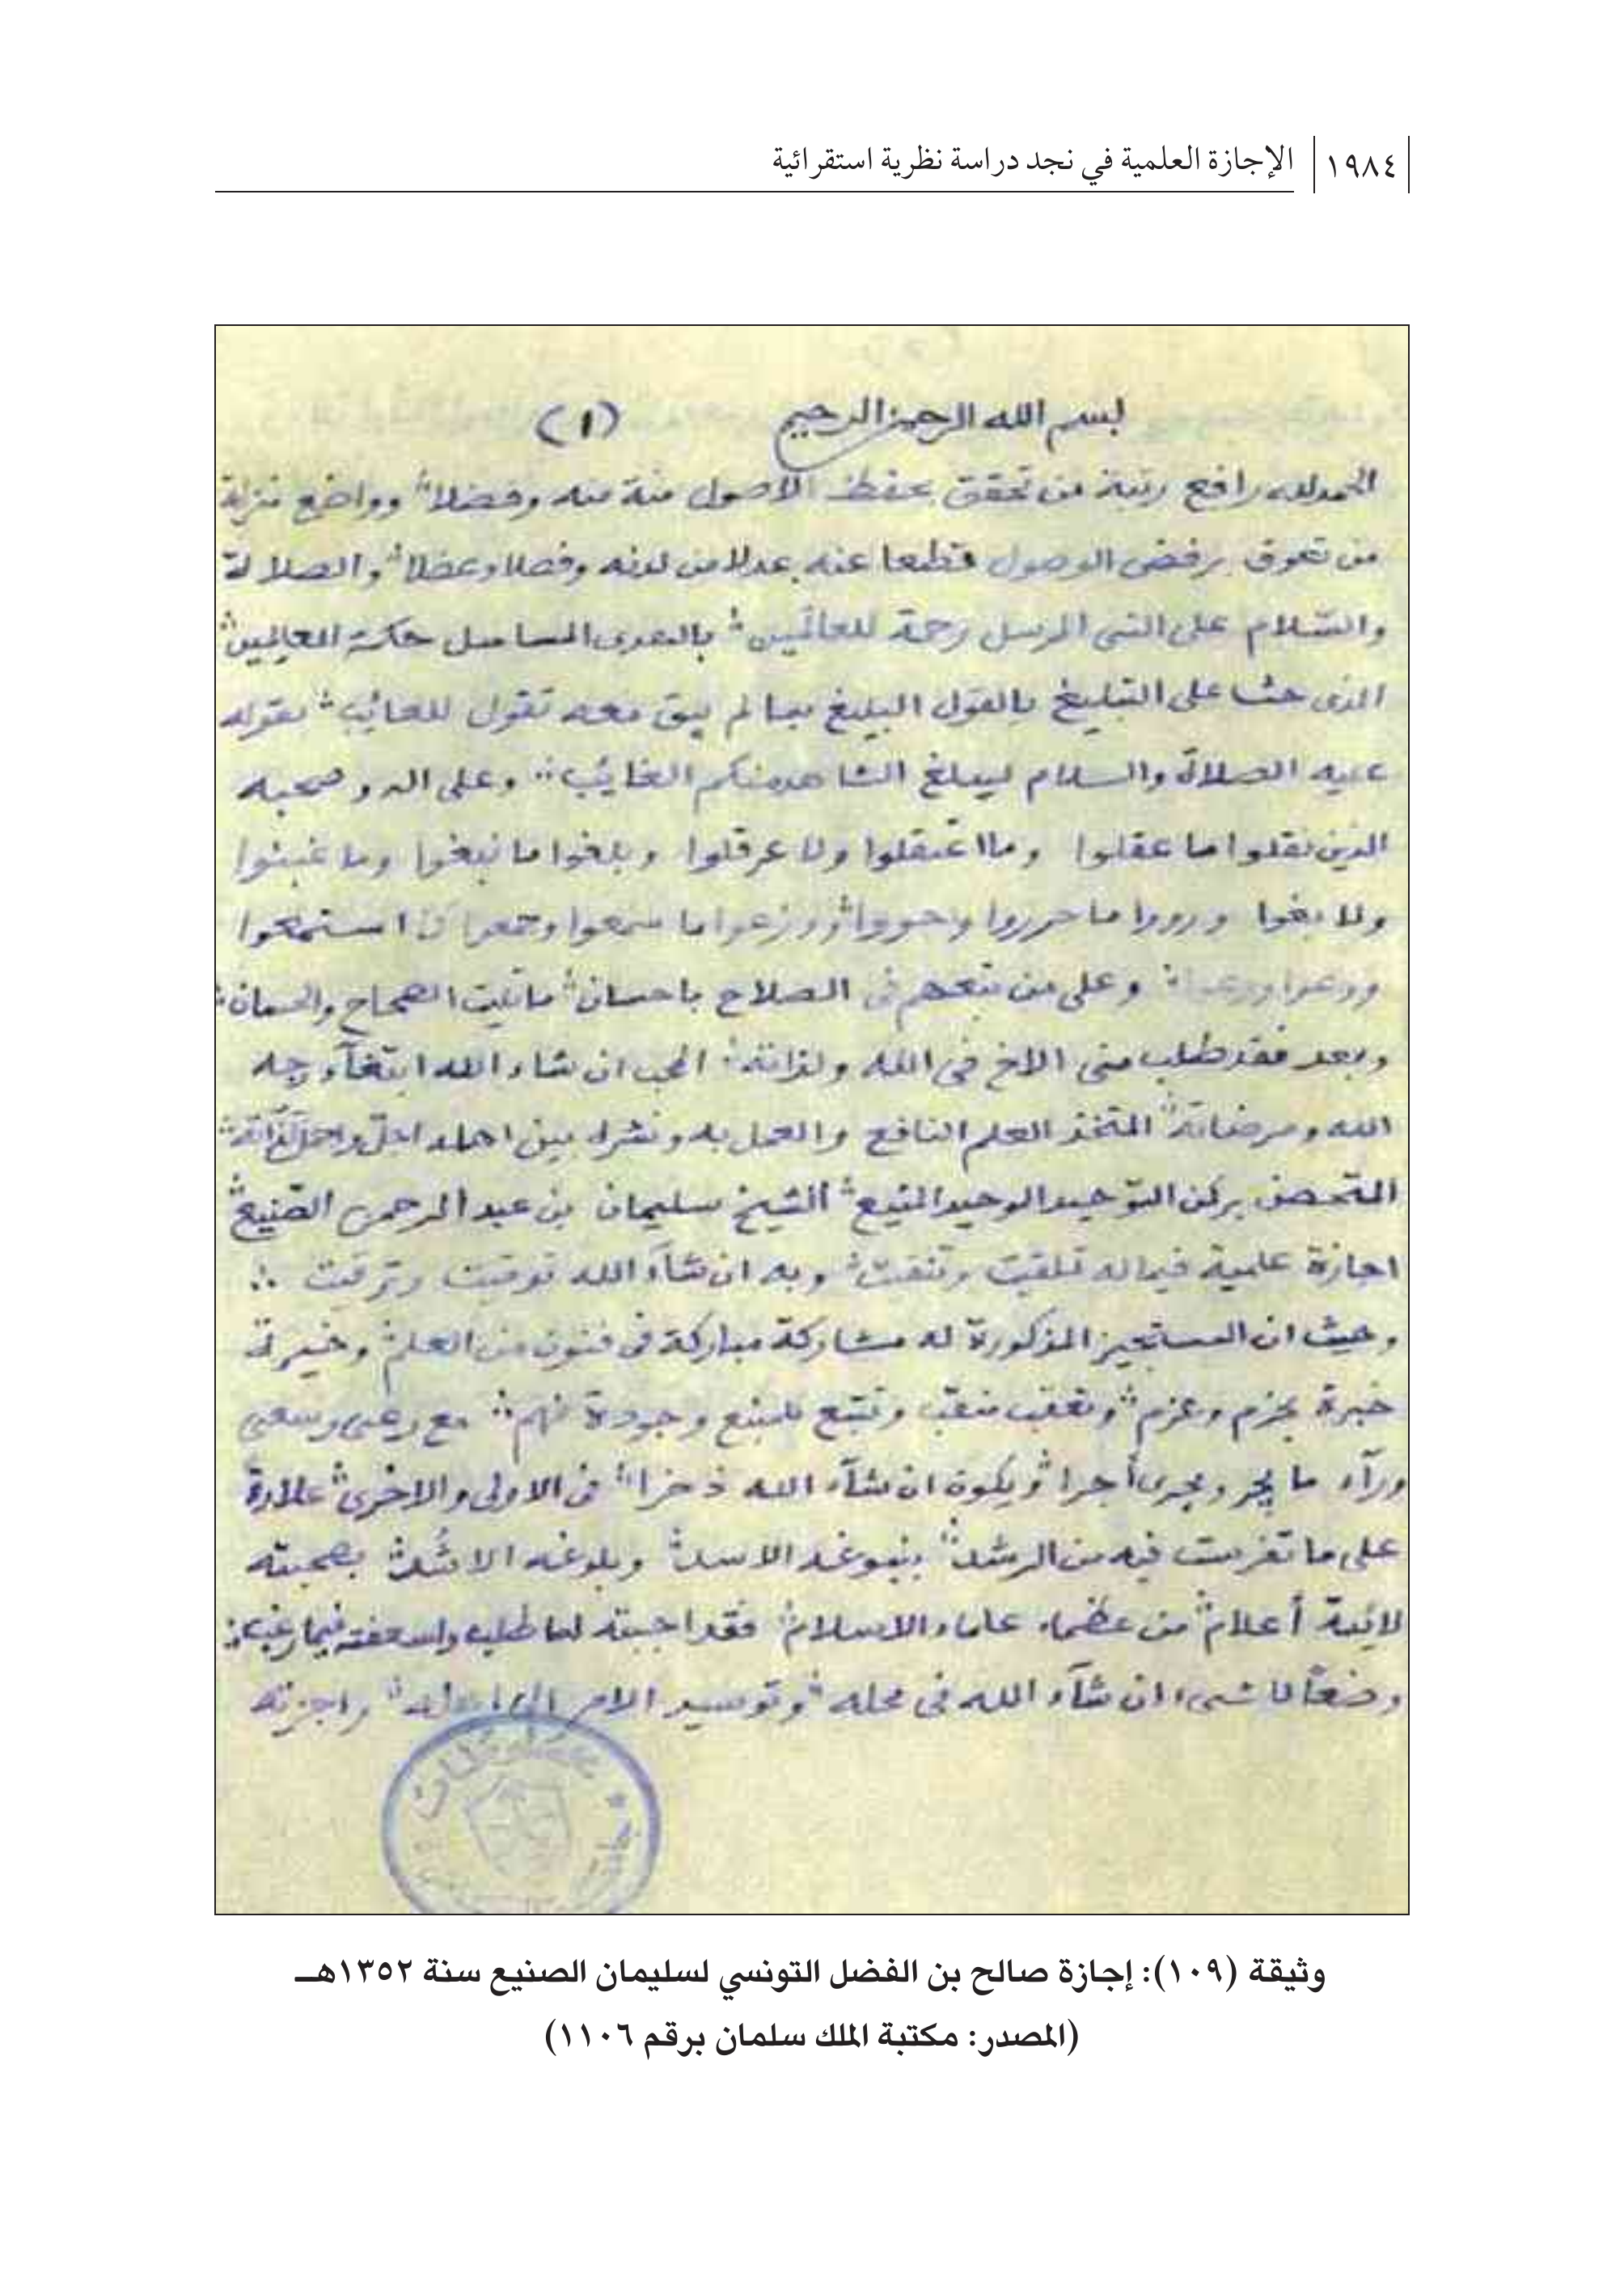 ١٩٨٤ الإجازة العلمية في نجد دراسة نظرية استقرائية
بسم الله الرحمن الرحيم (١)
الحمد لله رافع رتبة من تحقق بحفظ الاصول منة منه وفضلا ووواضع منزلة
من تعوق برفض الوصول قطعا عنه عدلا من لدنه وفصلا وعضلا والصلاة
والسّلام على النبى المرسل رحمة للعالمين حكمة للعالمين
الذى حثنا على التبليغ بالقول البليغ بما لم يبق معه تقول للعائب بقوله
عليه الصلاة والسلام ليبلغ الشاهد منكم الغايب وعلى اله وصحبه
الذين نقلوا ما عقلوا وما اعتقلوا ولا عرقلوا وبلغوا ما نبغوا وما غبنوا
ولا بغوا ورووا ما حرروا وما سمعوا استمعوا
وعلى من تبعهم فى الصلاح باحسان ما تليت الصحاح والحسان
وبعد فقد طلب منى الاخ فى الله ولذاته المحب ان شاء الله ابتغآء وجه
الله ومرضاته المتخذ العلم النافع والعمل به ونشره بين اهله اجلّ
المتحصن بركن التوحيد الوحيد المنيع الشيخ سليمان بن عبد الرحمن الصّنيع
اجازة علمية فيما له تلقيت وتنقيت وبه ان شآء الله توقيت وترقيت
وحيث ان المستجيز المذكورة له مشاركة مباركة فى فنون من العلم وخبرة
خبرة بحزم وعزم وتعقب منقب وتتبع وجودة فهم مع وعى وسعى
ورآء ما يجر ويجرى أجرا ويكون ان شآء الله ذخرا فى الاولى والاخرى علاوة
على ما تفرست فيه من الرشد بنبوغه الاسد وبلوغه الاشُد بصحبته
لائمة أعلام من عظماء علماء الاسلام فقد اجبته لما طلب واسعفته فيما رغب
وضعًا لشىء ان شآء الله فى محله وتوسيد الامر الى اهله واجزته
وثيقة (١٠٩): إجازة صالح بن الفضل التونسي لسليمان الصنيع سنة ١٣٥٢هــ
(المصدر: مكتبة الملك سلمان برقم ١١٠٦)